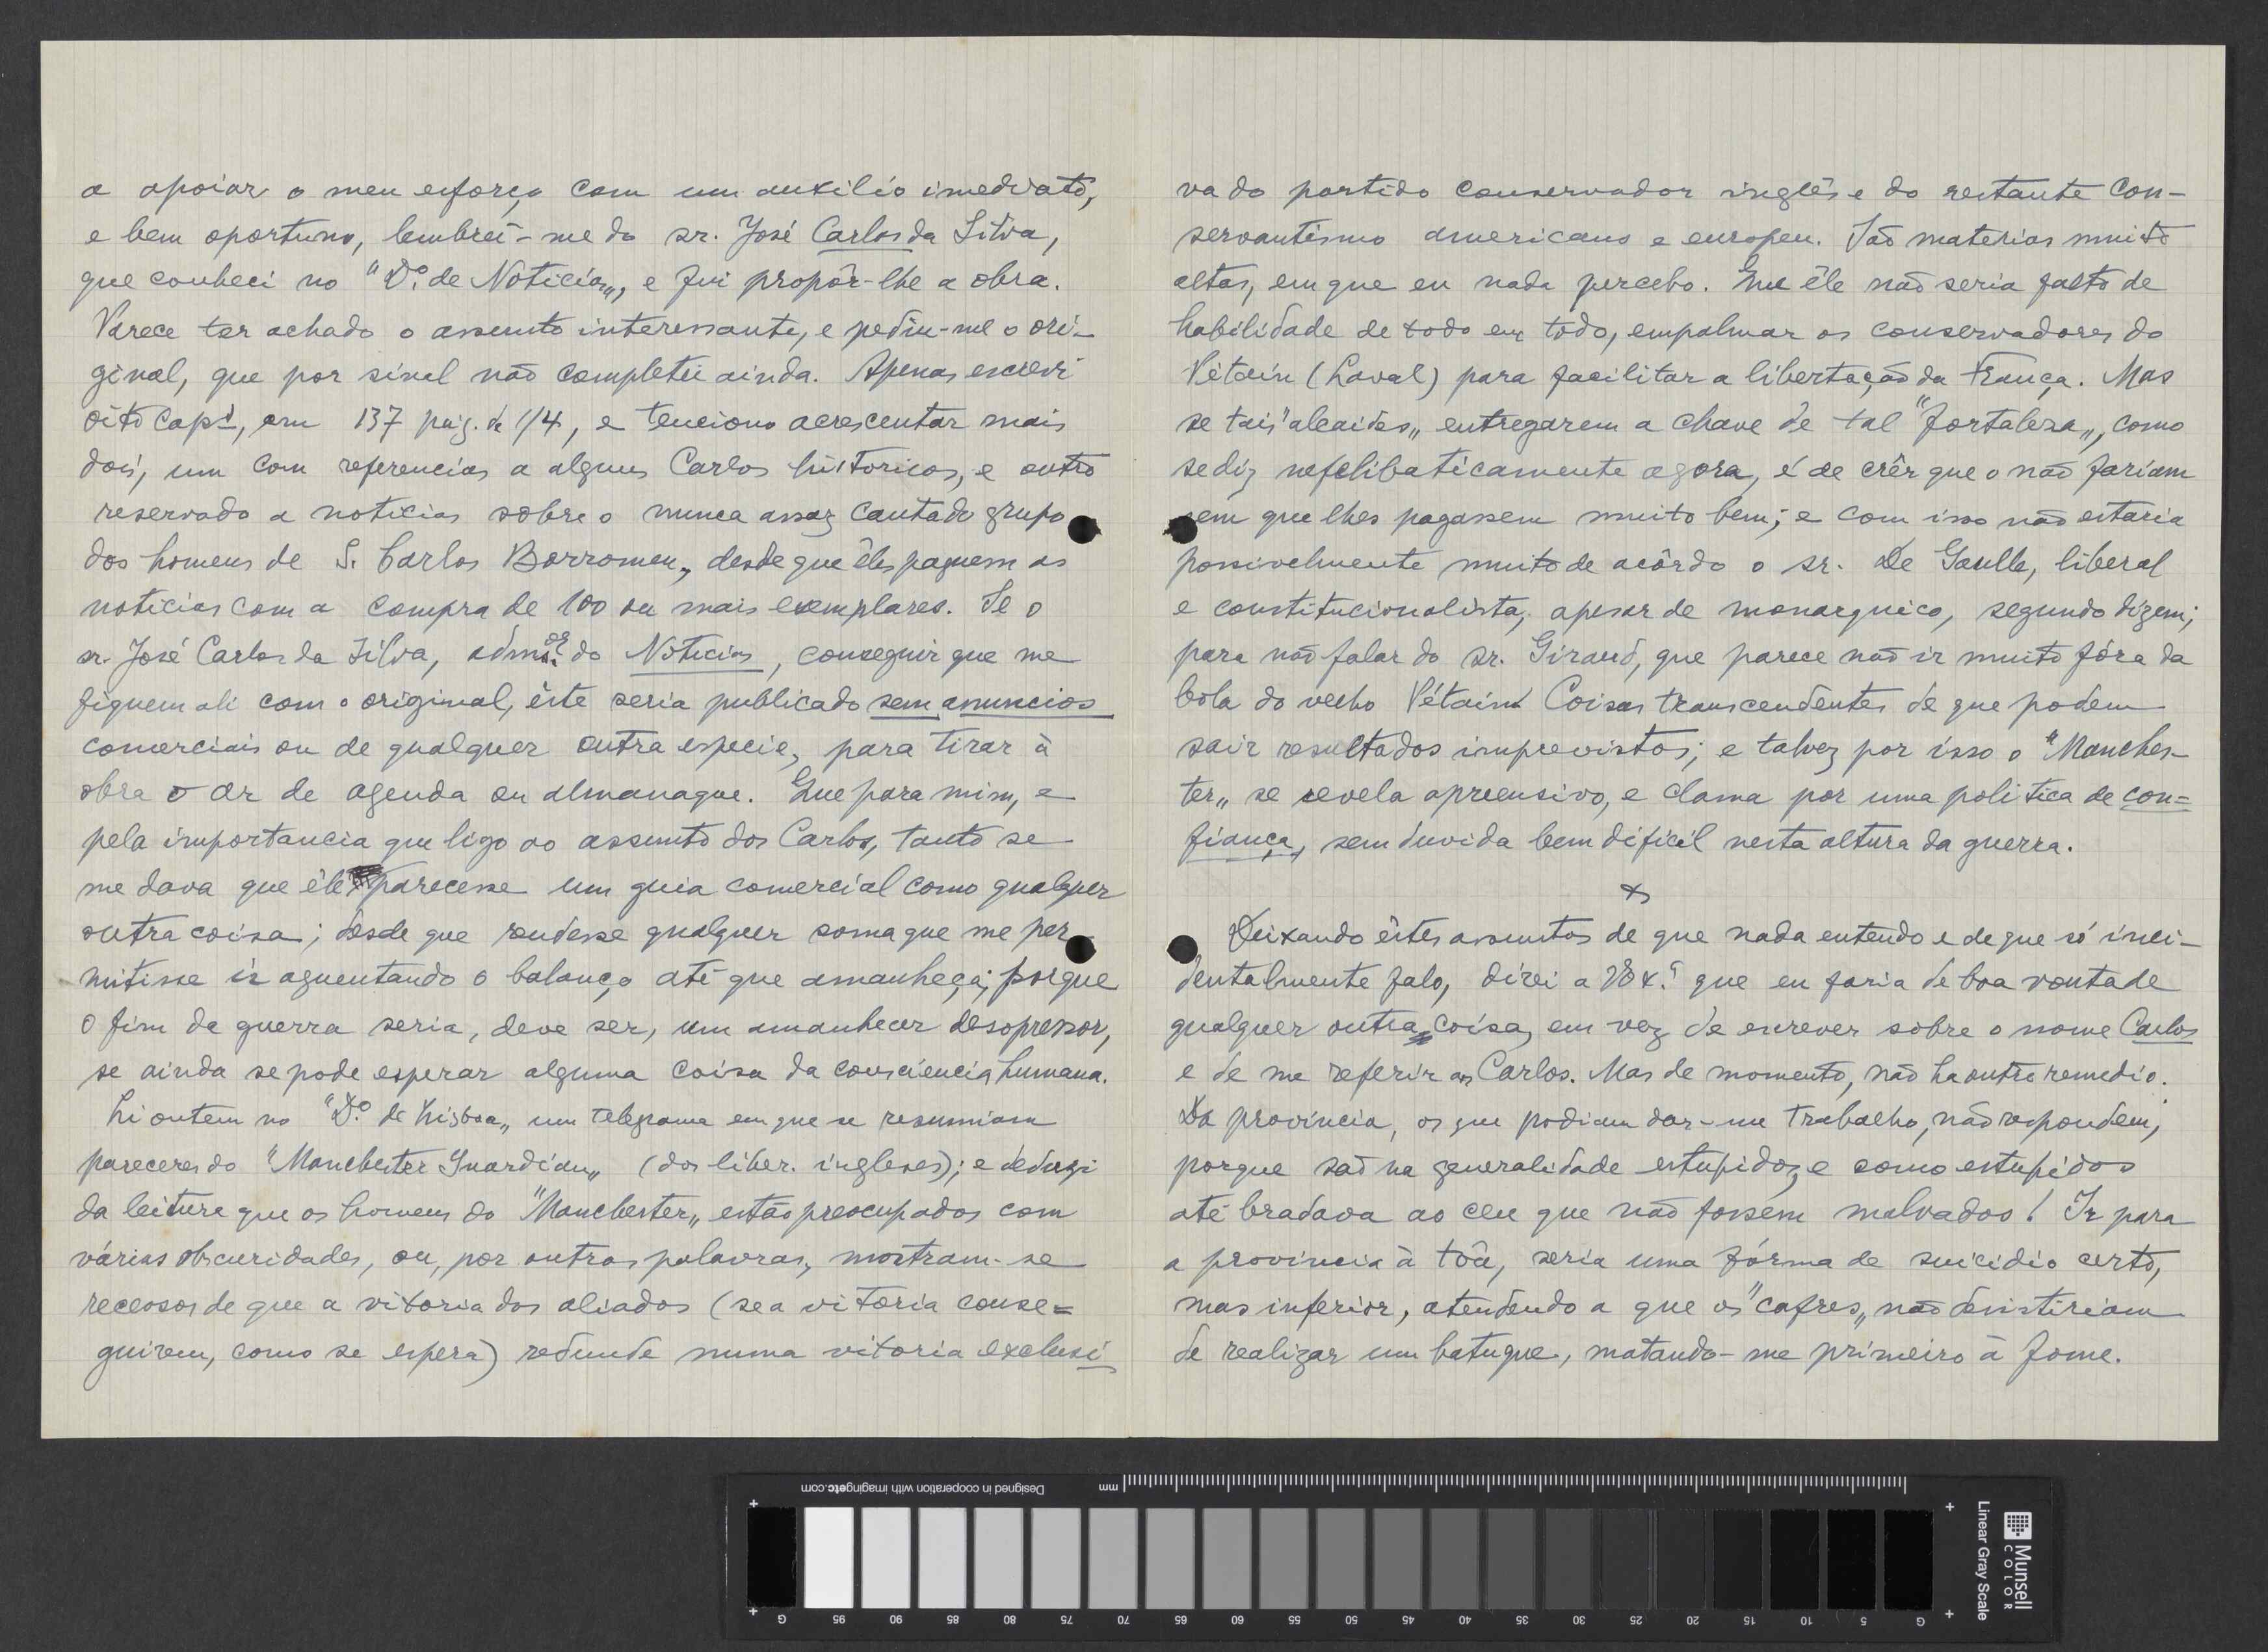 a apoiar o meu esforço com um auxilio imediato,
e bem oportuno, lembrei-me do sr. José Carlos da Silva,
que conheci no "Dº. de Noticias„, e fui propôr-lhe a obra.
Parece ter achado o assunto interessante, e pediu-me o ori-
ginal, que por sinal não completei ainda. Apenas escrevi
oito caps, em 137 pág. de 1/4, e tenciono acrescentar mais
dois, um com referencias a alguns Carlos historicos, e outro
reservado a noticias sobre o nunca assaz cantado grupo
dos homens de S. Carlos Borromeu, desde que êles paguem as
noticias com a compra de 100 ou mais exemplares. Se o
sr. José Carlos da Silva, admor. do Noticias, conseguir que me
fiquem ali com o original, êste seria publicado sem anuncios
comerciais ou de qualquer outra especie, para tirar à
obra o ar de agenda ou almanaque. Que para mim, e
pela importancia que ligo ao assunto dos Carlos, tanto se
me dava que êle parecesse um guia comercial como qualquer
outra coisa; desde que rendesse qualquer soma que me per
mitisse ir aguentando o balanço até que amanheça; porque
o fim da guerra seria, deve ser, um amanhecer desopressor,
se ainda se pode esperar alguma coisa da consciencia humana.
Li ontem no "Dº. de Lisboa„ um telegrama em que se resumiam
pareceres do "Manchester Guardian„ (dos liber. ingleses); e deduzi
da leitura que os homens do "Manchester„ estão preocupados com
várias obscuridades, ou, por outras palavras, mostram-se
receosos de que a vitoria dos aliados (se a vitoria conse=
guirem, como se espera) redunde numa vitoria exclusi
va do partido conservador inglês e do restante con-
servantismo americano e europeu. São materias muito
altas, em que eu nada percebo. Que êle não seria falto de
habilidade de todo em todo, empalmar os conservadores do
Pétain (Laval) para facilitar a libertação da França. Mas
se tais "alcaides„ entregarem a chave de tal "fortaleza„, como
se diz nefelibaticamente agora, é de crêr que o não fariam
sem que lhes pagassem muito bem; e com isso não estaria
possivelmente muito de acôrdo o sr. De Gaulle, liberal
e constitucionalista, apesar de monarquico, segundo dizem;
para não falar do sr. Giraud, que parece não ir muito fóra da
bola do velho Pétain. Coisas transcendentes de que podem
sair resultados imprevistos; e talvez por isso o "Manches-
ter„ se revela apreensivo, e clama por uma politica de con=
fiança, sem duvida bem dificil nesta altura da guerra.
x
Deixando êstes assuntos de que nada entendo e de que só inci-
dentalmente falo, direi a V. Ex.ª que eu faria de boa vontade
qualquer outra coisa, em vez de escrever sobre o nome Carlos
e de me referir aos Carlos. Mas de momento, não ha outro remedio.
Da provincia, os que podiam dar-me trabalho, não respondem;
porque são na generalidade estupidos, e como estupidos
até bradava ao ceu que não fossem malvados! Ir para
a provincia à tôa, seria uma fórma de suicidio certo,
mas inferior, atendendo a que os "cafres„ não desistiriam
de realizar um batuque, matando-me primeiro à fome.
Designed in cooperation with imagingetc.com
mm
G 95 90 85 80 75 70 65 60 55 50 45 40 35 30 25 20 15 10 5 G
Munsell
COLOR
Linear Gray Scale